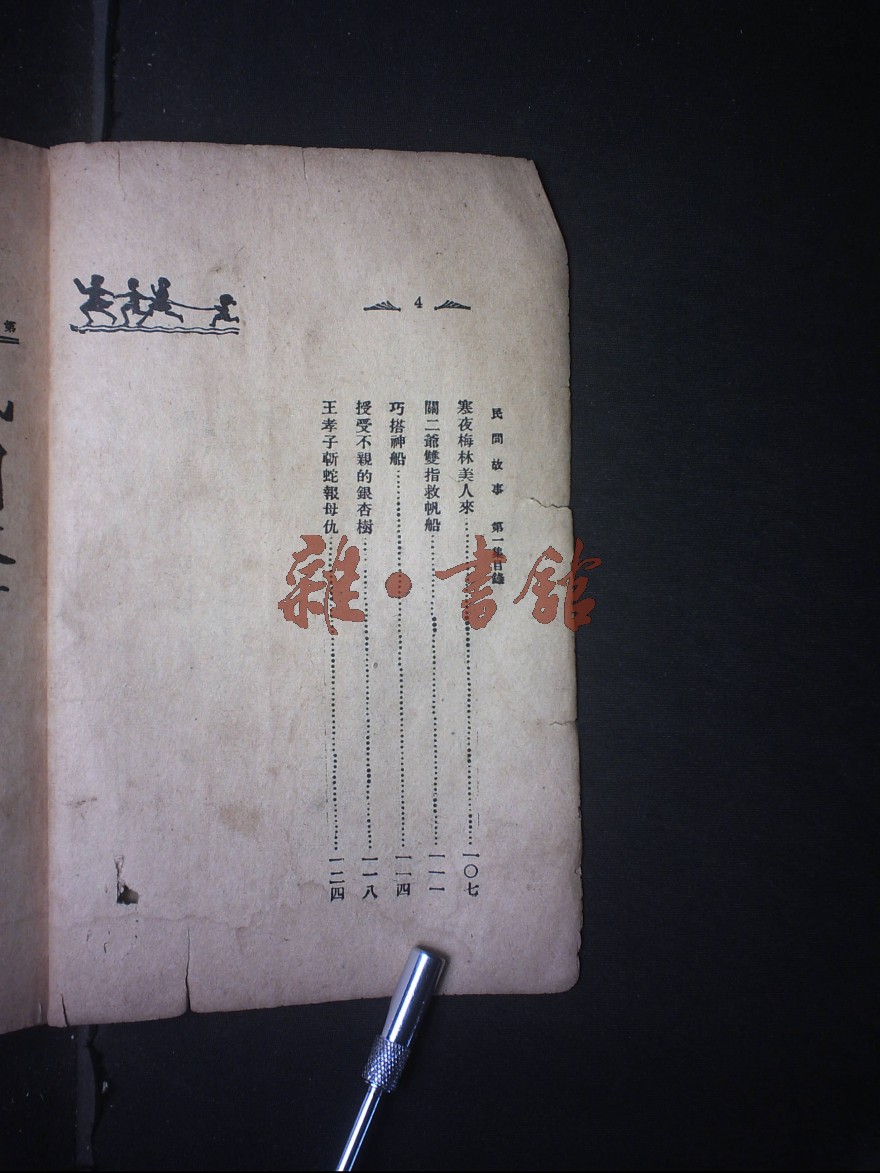 4
民間故事 第一集目錄
寒夜梅林美人來……一〇七
關二爺雙指救帆船……一一一
巧搭神船……一一四
授受不親的銀杏樹……一一八
王孝子斬蛇報母仇……一二四
雜·書館
第